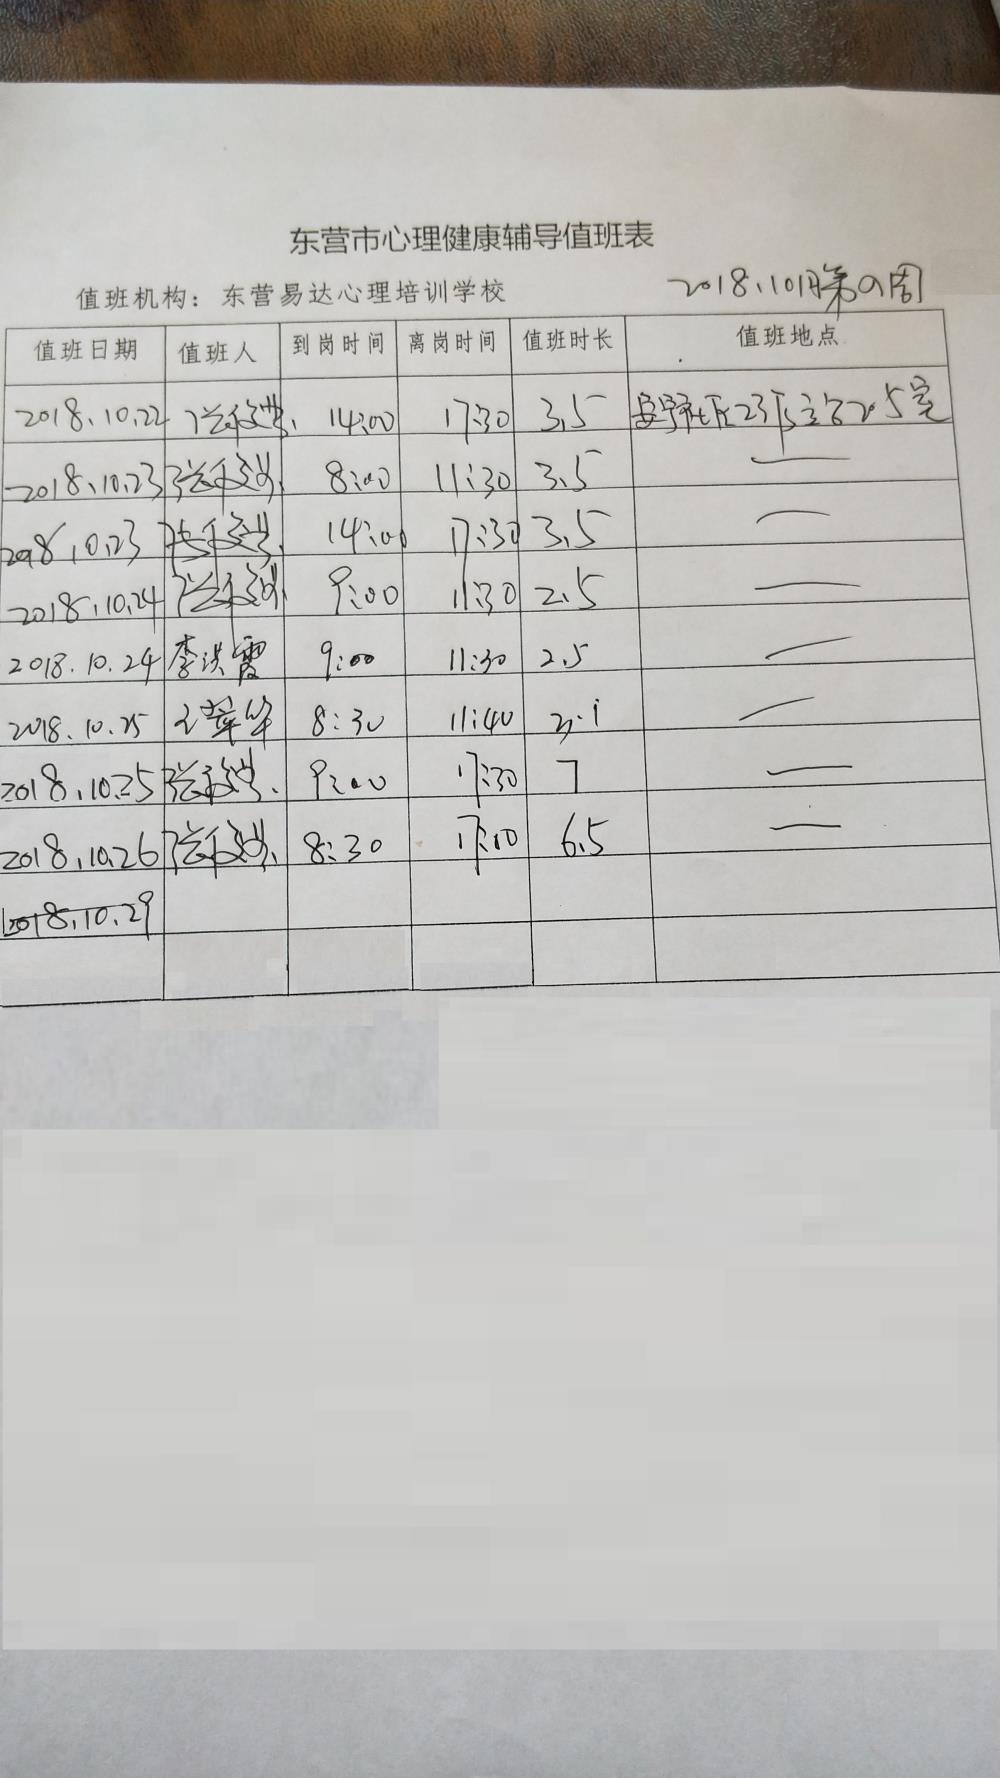 东营市心理健康辅导值班表
值班机构：东营易达心理培训学校 2018.10月第四周
值班日期 值班人 到岗时间 离岗时间 值班时长 值班地点
2018.10.22 张 14:00 17:30 3.5 23 205室
2018.10.23 张 8:00 11:30 3.5 —
2018.10.23 张 14:00 17:30 3.5 —
2018.10.24 张 9:00 11:30 2.5 —
2018.10.24 李洪霞 9:00 11:30 2.5 —
2018.10.25 华 8:30 11:40 3.1 —
2018.10.25 张 9:00 17:30 7 —
2018.10.26 张 8:30 17:00 6.5 —
2018.10.29